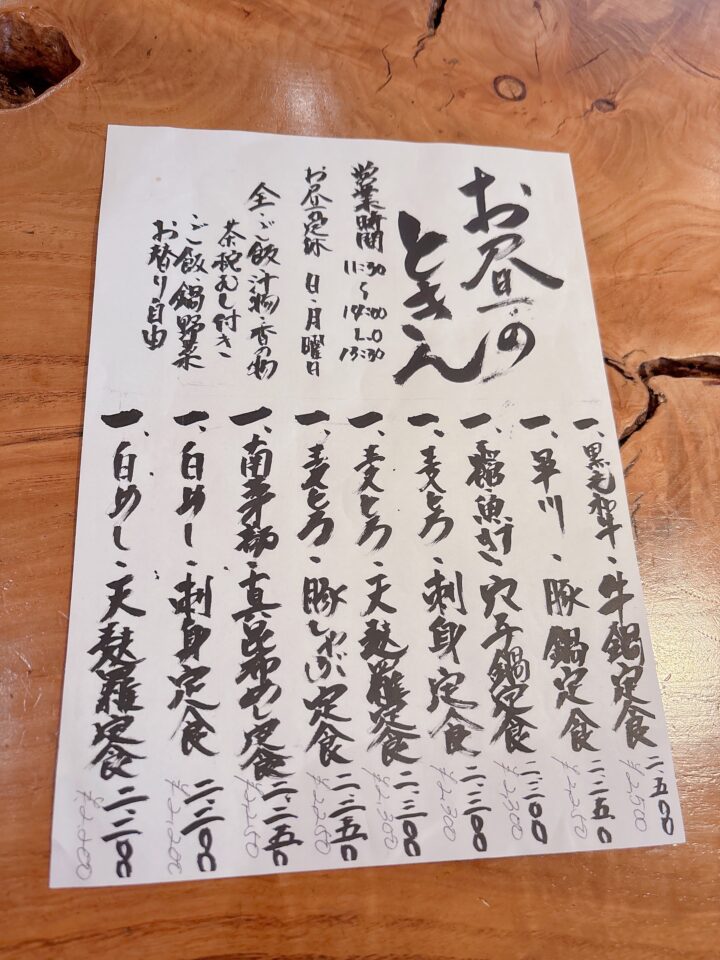 お昼の
ときえ
営業時間 11:30〜14:00 L.O 13:30
お昼の定休 日・月曜日
全、ご飯・汁物・香の物
茶碗むし付き
ご飯・鍋野菜
お替り自由
一、黒毛和牛・牛鍋定食 二、五〇〇
¥2,500
一、早川・豚鍋定食 二、二五〇
¥2,250
一、穴子鍋定食 二、三〇〇
¥2,300
一、麦とろ・刺身定食 二、三〇〇
¥2,300
一、麦とろ・天麩羅定食 二、三〇〇
¥2,300
一、麦とろ・豚しゃぶ定食 二、二五〇
¥2,250
一、南茅部・真昆布めし定食 二、二五〇
¥2,250
一、白めし・刺身定食 二、二〇〇
¥2,200
一、白めし・天麩羅定食 二、二〇〇
¥2,200